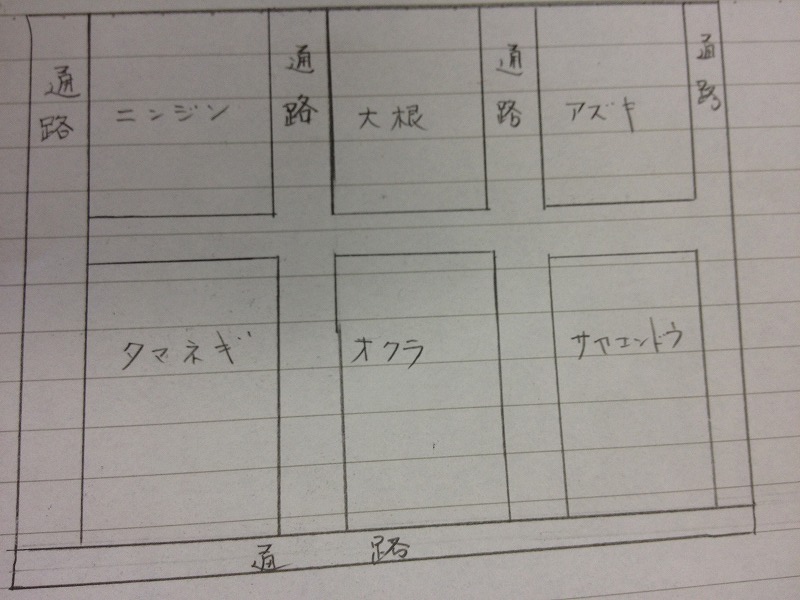 通路
ニンジン
通路
大根
通路
アズキ
通路
タマネギ
オクラ
サヤエンドウ
通路